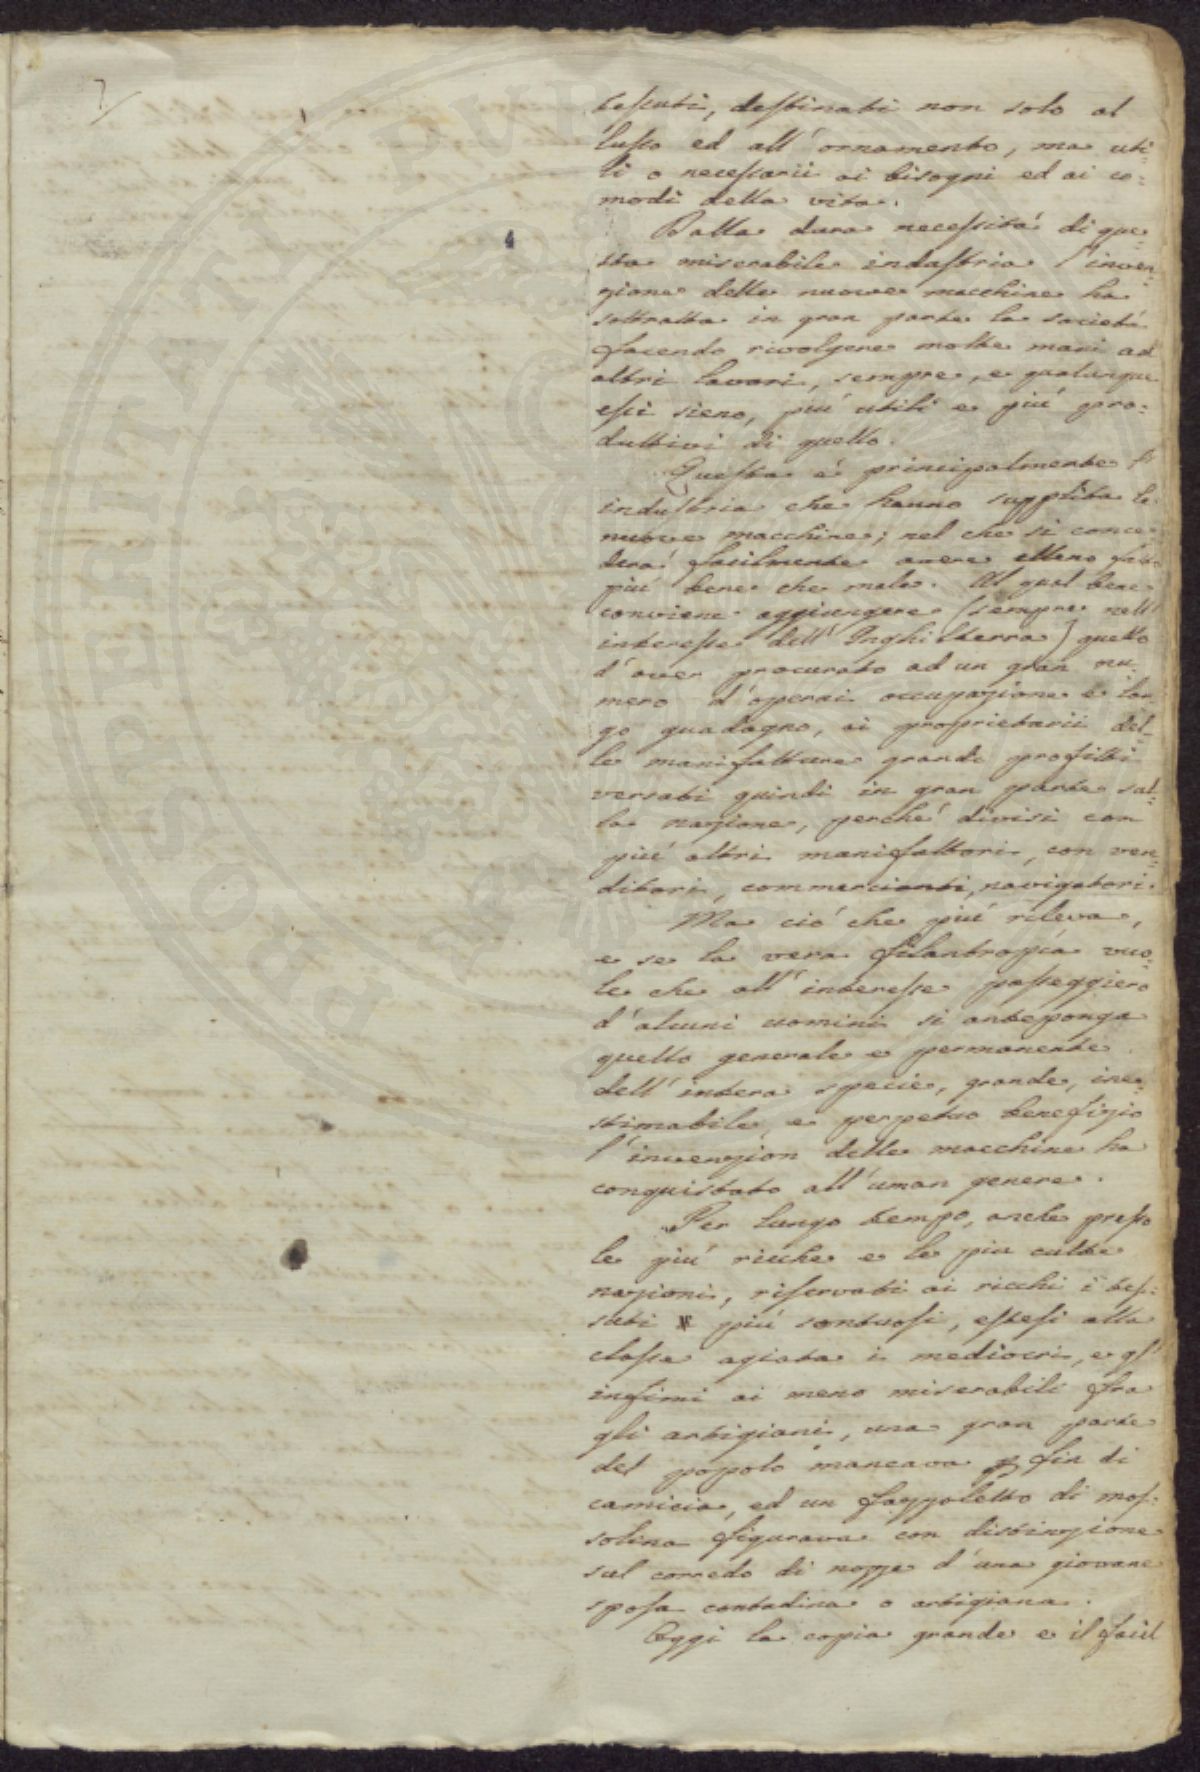 7
tessuti, destinati non solo al
lusso ed all'ornamento, ma uti=
li o necessarii ai bisogni ed ai co=
modi della vita.
Dalla dura necessità di que=
sta miserabile industria l'inven=
zione delle nuove macchine ha
sottratta in gran parte la società
facendo rivolgere molte mani ad
altri lavori, sempre, e qualunque
essi sieno, più utili e più pro=
duttivi di quello.
Questa è principalmente l'
industria che hanno supplita le
nuove macchine; nel che si conce=
derà facilmente avere elleno fatto
più bene che male. Al qual bene
conviene aggiungere (sempre nell'
interesse dell'Inghilterra) quello
d'aver procurato ad un gran nu=
mero d'operai occupazione e lar=
go guadagno, ai proprietarii del=
le manifatture grandi profitti
versati quindi in gran parte sul=
la nazione, perché divisi con
più altri manifattori, con ven=
ditori, commercianti, navigatori.
Ma ciò che più rileva,
e se la vera filantropia vuo=
le che all'interesse passeggiero
d'alcuni uomini si anteponga
quello generale e permanente
dell'intera specie, grande, ine=
stimabile, e perpetuo benefizio
l'invenzion delle macchine ha
conquistato all'uman genere.
Per lungo tempo, anche presso
le più ricche e le piu culte
nazioni, riservati ai ricchi i tes=
suti più sontuosi, estesi alla
classe agiata i mediocri, e gl'
infimi ai meno miserabili fra
gli artigiani, una gran parte
del popolo mancava p fin di
camicia, ed un fazzoletto di mus=
solina figurava con distinzione
sul corredo di nozze d'una giovane
sposa contadina o artigiana.
Oggi la copia grande e il facil
PROSPERITATI PUBL